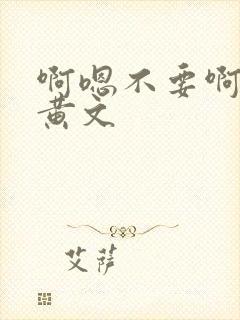 啊嗯不要啊
黄文
艾萨